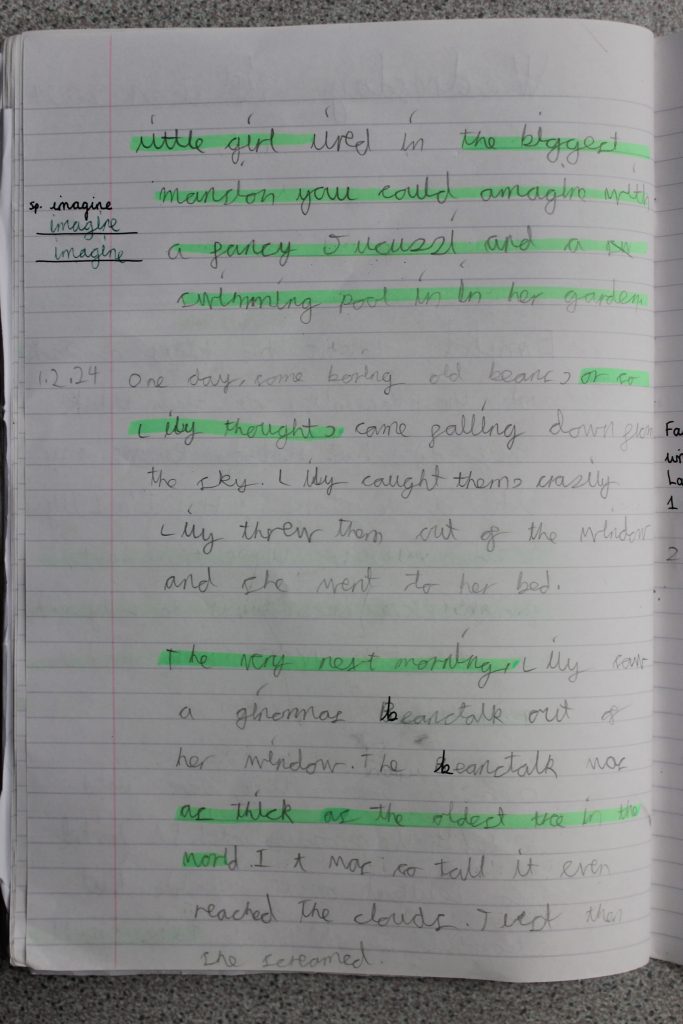 little girl lired in the biggest
mansion you could amagine with
sp. imagine
imagine
imagine
a fancy Jucuzzi and a
swimming pool in in her garden.
1.2.24 One day, some boring old beans, or so
Lily thought, came falling down from
the sky. Lily caught them, crazily
Lily threw them out of the window
and she went to her bed.
The very nest morning, Lily saw
a ginormas beanstalk out of
her window. The beanstalk was
as thick as the oldest tree in the
world. It was so tall it even
reached the clouds. Just then
she screamed.
Fa
wi
La
1
2